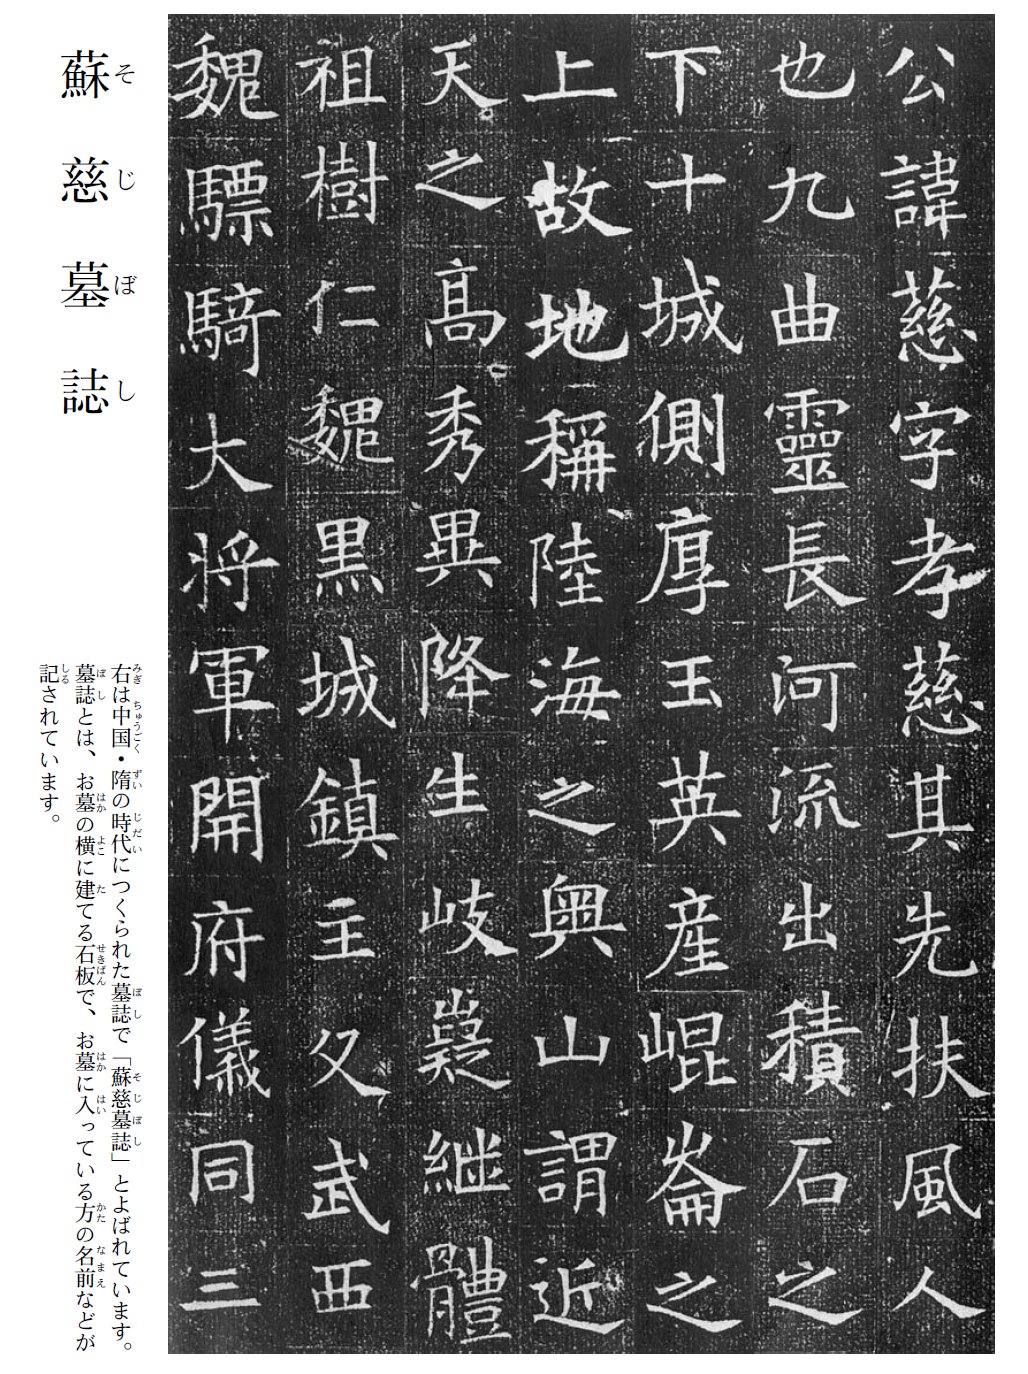 公諱慈字孝慈其先扶風人
也九曲靈長河流出積石之
下十城側厚玉英產崐崙之
上故地稱陸海之奧山謂近
天之高秀異降生岐嶷継體
祖樹仁魏黑城鎮主父武西
魏驃騎大将軍開府儀同三
蘇慈墓誌
そじぼし
右は中国・隋の時代につくられた墓誌で「蘇慈墓誌」とよばれています。
墓誌とは、お墓の横に建てる石板で、お墓に入っている方の名前などが
記されています。